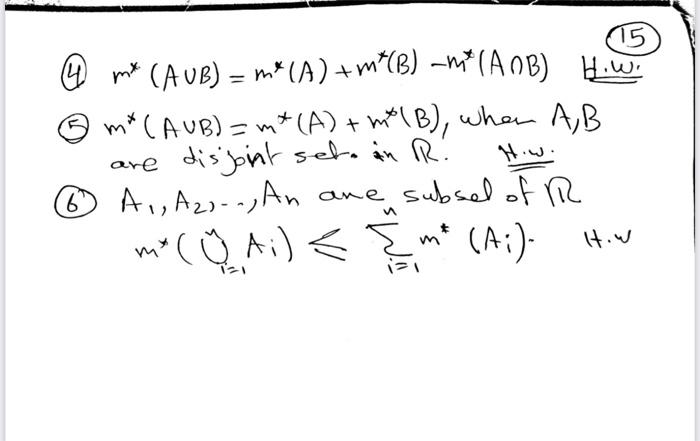 15
④ m* (A∪B) = m*(A) + m*(B) - m*(A∩B) H.W.
⑤ m* (A∪B) = m*(A) + m*(B), when A,B
are disjoint set. in ℝ. H.W.
⑥ A₁, A₂, .., Aₙ are subset of ℝ
m* (⋃ᵢ₌₁ⁿ Aᵢ) ≤ ∑ᵢ₌₁ⁿ m* (Aᵢ). H.W